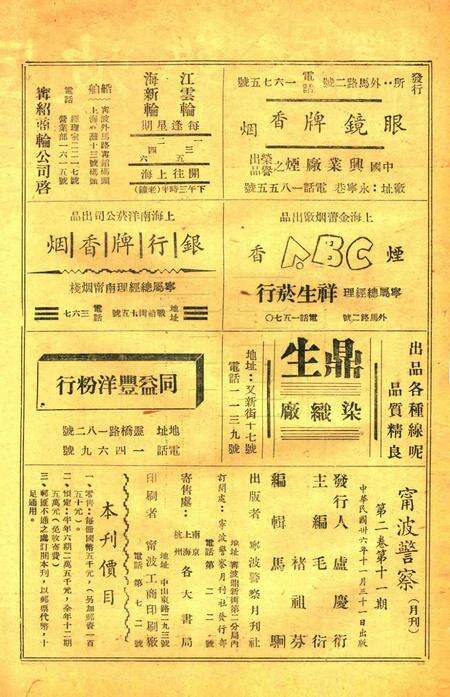 發行
所：外馬路二號 電話 一六七五號
眼鏡牌香烟
中國興業廠煙之榮譽出品
廠址：永寧巷 電話一八五五號
江雲輪
海新輪
每逢星期
一三五
二四六
開往上海
下午三時半(老鐘)
船舶 寧波外馬路寧紹碼頭
上海外灘十三號碼頭
電話 經理室二二一七號
營業部一六一五號
寧紹商輪公司啓
上海金門烟廠出品
煙ABC香
寧屬總經理 祥生菸行
外馬路二號 電話一五七〇
上海南洋菸公司出品
銀行牌香烟
寧屬總經理南甯烟棧
地址 戰船街七五號 電話 三六七
出品各種線呢
品質精良
鼎生
染織廠
地址：又新街十七號
電話 一一三九號
同益豐洋粉行
地址 靈橋路一八二號
電話 一四六九號
甯波警察 (月刊)
第二卷第十一期
中華民國卅六年十一月三十一日出版
發行人 盧慶衍
主編 毛衍
編輯 褚祖芬
馬駉
出版者 寧波警察月刊社
地址 寧波鼎新街第二分局內
訂閱處：寧波警察月刊社發行部
電話第二二一號
寄售處：南京 上海 杭州 各大書局
印刷者 甯波工商印刷廠
地址 中山東路二九三號
電話第七二二號
本刊價目
一、零售：每冊國幣五千元，(另加郵資一百五十元)。
二、預定：半年六期二萬五千元，全年十二期五萬元(免收寄費)。
三、郵匯不通之處訂閱本刊，以郵票代幣，十足通用。